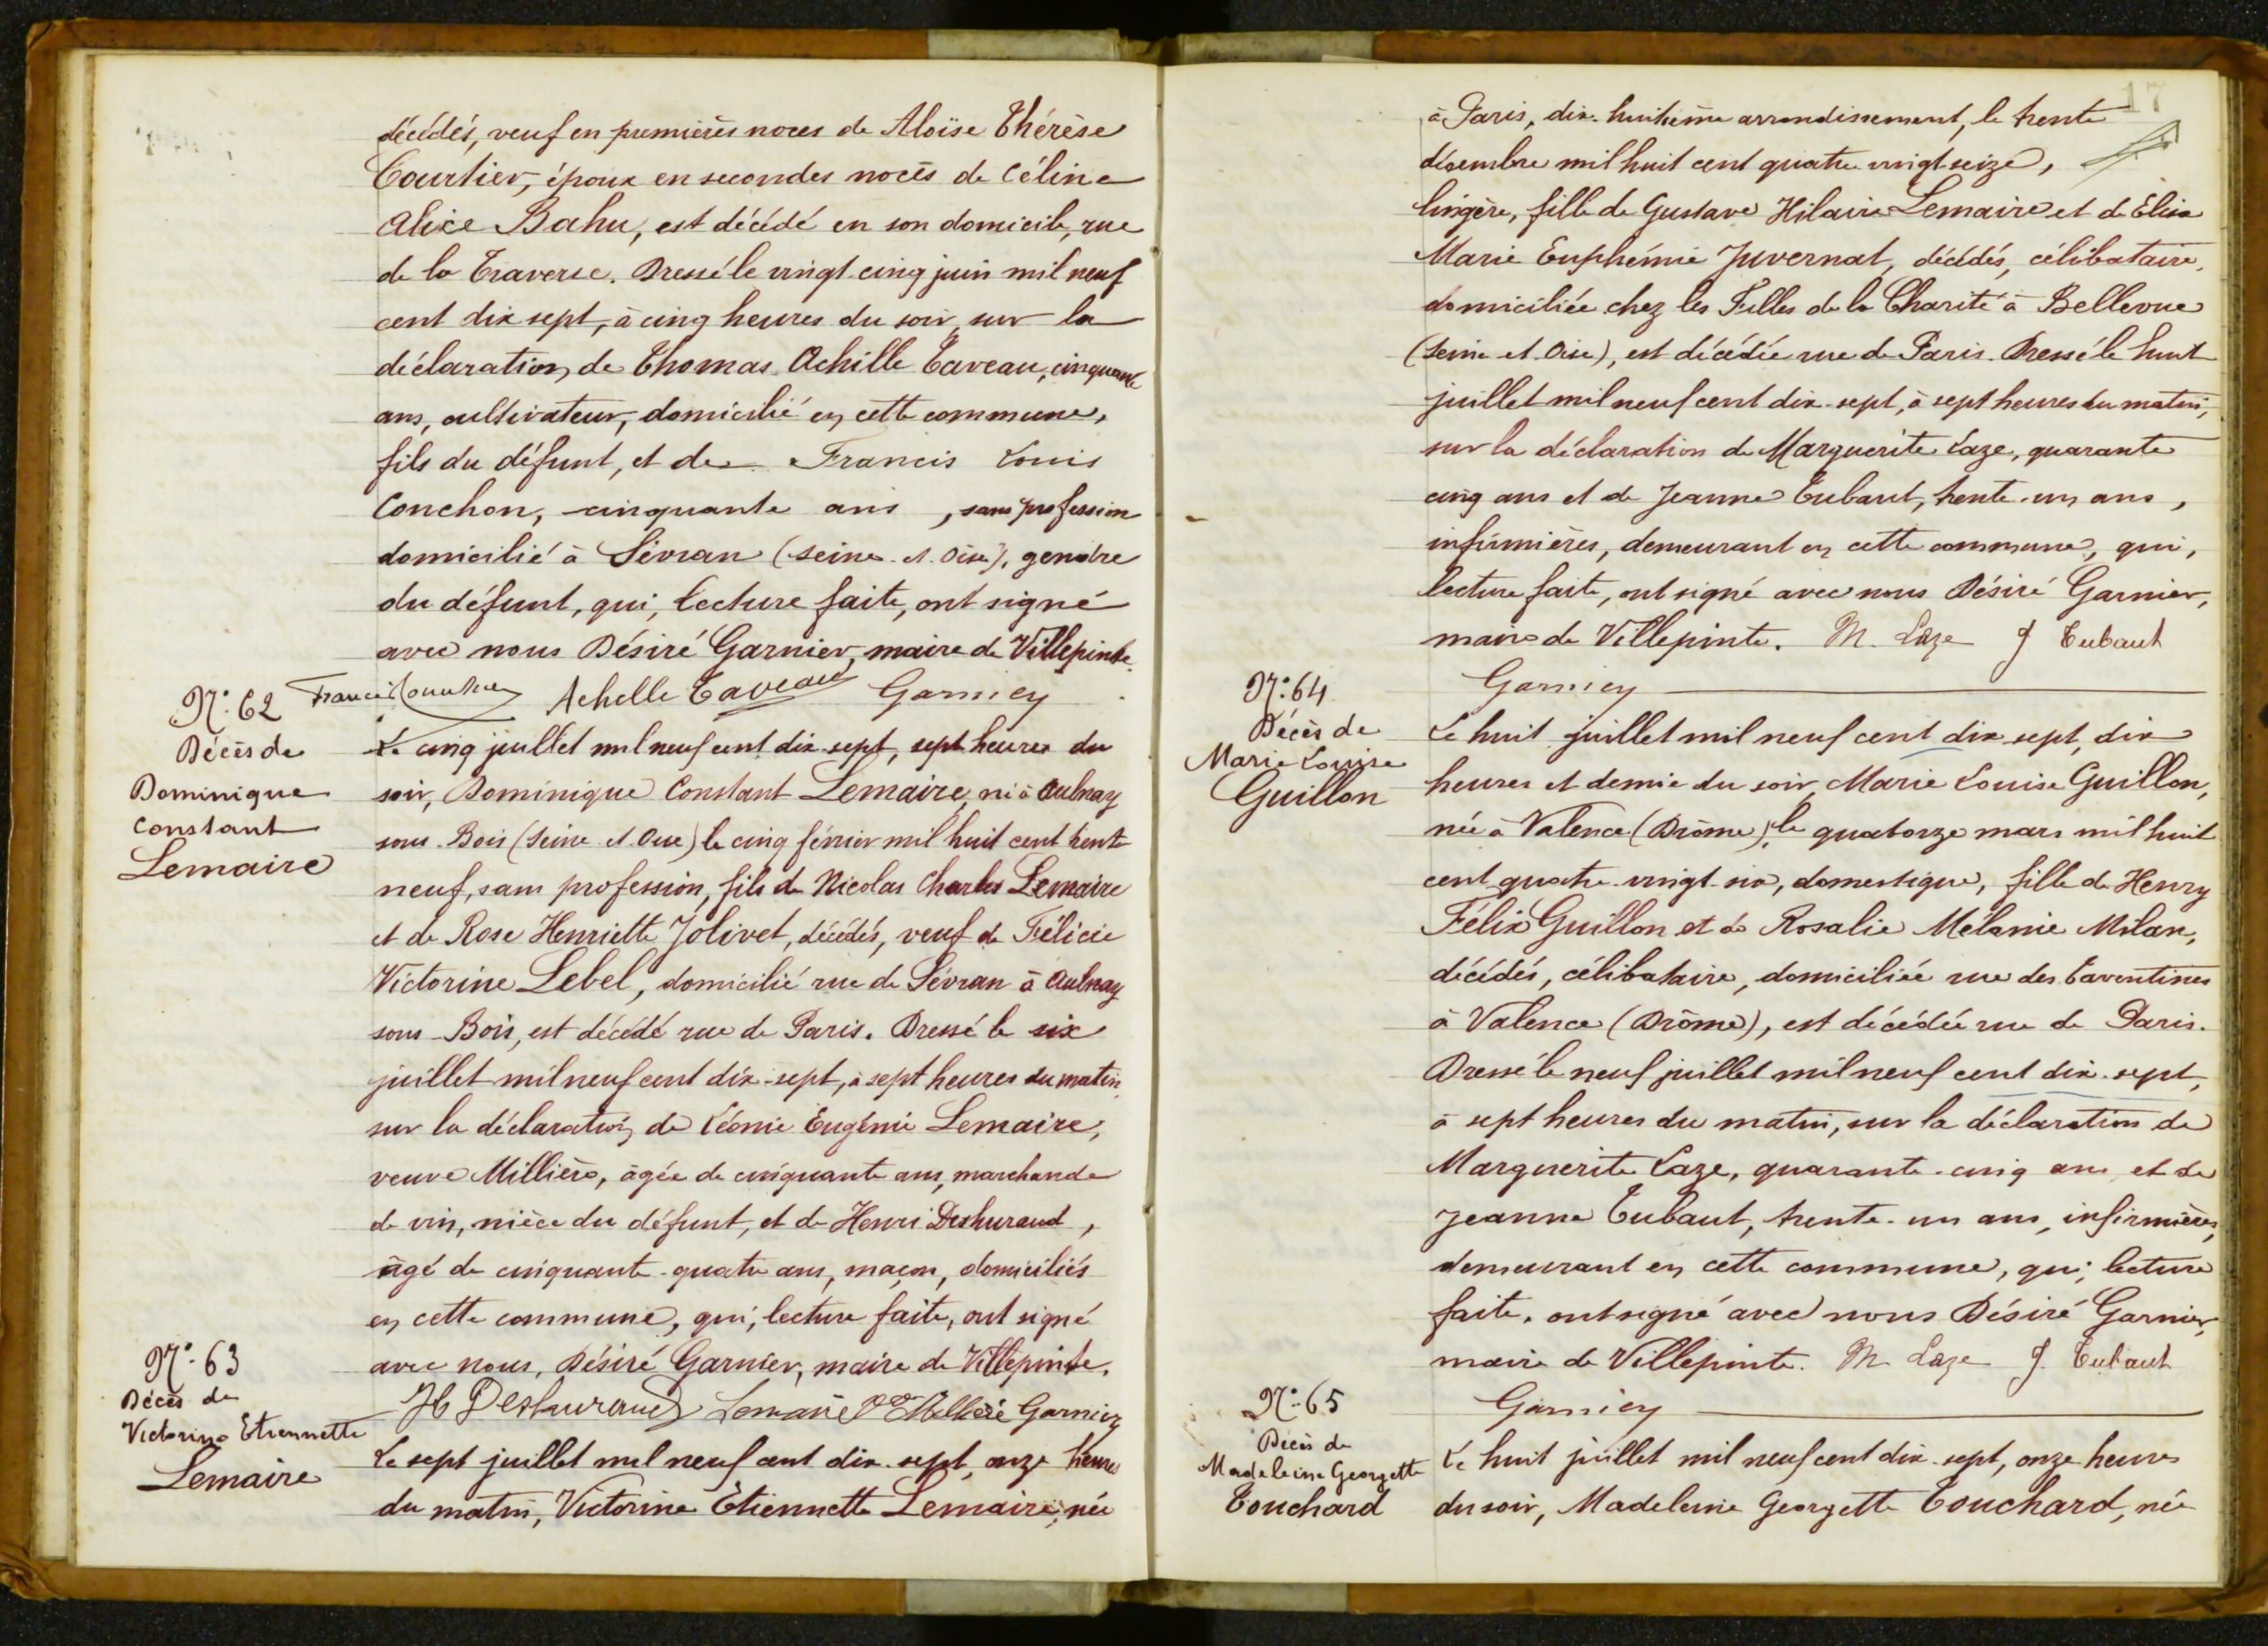 décédés, veuf en premières noces de Aloïse Thérèse
Courtier, époux en secondes noces de Céline
Alice Bahu, est décédé en son domicile, rue
de la Traverse. Dressé le vingt-cinq juin mil neuf
cent dix sept, à cinq heures du soir, sur la
déclaration de Thomas Achille Taveau, cinquante
ans, cultivateur, domicilié en cette commune,
fils du défunt, et de Francis Louis
Conchon, cinquante ans, sans profession
domicilié à Sévran (Seine-et-Oise), gendre
du défunt, qui, lecture faite, ont signé
avec nous Désiré Garnier, maire de Villepinte.
Francis Conchon Achille Taveau Garnier
N° 62
Décès de
Dominique
Constant
Lemaire
Le cinq juillet mil neuf cent dix-sept, sept heures du
soir, Dominique Constant Lemaire, né à Aulnay
sous-Bois (Seine et Oise) le cinq février mil huit cent trente
neuf, sans profession, fils de Nicolas Charles Lemaire
et de Rose Henriette Jolivet, décédés, veuf de Félicie
Victorine Lebel, domicilié rue de Sévran à Aulnay
sous-Bois, est décédé rue de Paris. Dressé le six
juillet mil neuf cent dix-sept, à sept heures du matin,
sur la déclaration de Léonie Eugénie Lemaire,
veuve Millière, âgée de cinquante ans, marchande
de vin, nièce du défunt, et de Henri Deshuraud,
âgé de cinquante-quatre ans, maçon, domiciliés
en cette commune, qui, lecture faite, ont signé
avec nous, Désiré Garnier, maire de Villepinte.
H Deshuraud Lemaire Vve Millière Garnier
N° 63
Décès de
Victorine Etiennette
Lemaire
Le sept juillet mil neuf cent dix-sept, onze heures
du matin, Victorine Etiennette Lemaire, née
17
à Paris, dix-huitième arrondissement, le trente
décembre mil huit cent quatre vingt seize,
lingère, fille de Gustave Hilaire Lemaire et de Elisa
Marie Euphémie Juvernat, décédés, célibataire,
domiciliée chez les Filles de la Charité à Bellevue
(Seine et Oise), est décédée rue de Paris. Dressé le huit
juillet mil neuf cent dix-sept, à sept heures du matin,
sur la déclaration de Marguerite Laze, quarante
cinq ans et de Jeanne Tubaut, trente-un ans,
infirmières, demeurant en cette commune, qui,
lecture faite, ont signé avec nous Désiré Garnier,
maire de Villepinte. M. Laze J Tubaut
Garnier
N° 64
Décès de
Marie Louise
Guillon
Le huit juillet mil neuf cent dix sept, dix
heures et demie du soir, Marie Louise Guillon,
née à Valence (Drôme), le quatorze mars mil huit
cent quatre-vingt-six, domestique, fille de Henry
Félix Guillon et de Rosalie Mélanie Milan,
décédés, célibataire, domiciliée rue des
à Valence (Drôme), est décédée rue de Paris.
Dressé le neuf juillet mil neuf cent dix-sept,
à sept heures du matin, sur la déclaration de
Marguerite Laze, quarante-cinq ans, et de
Jeanne Tubaut, trente-un ans, infirmières,
demeurant en cette commune, qui, lecture
faite, ont signé avec nous Désiré Garnier,
maire de Villepinte. M. Laze J. Tubaut
Garnier
N° 65
Décès de
Madeleine Georgette
Touchard
Le huit juillet mil neuf cent dix-sept, onze heures
du soir, Madeleine Georgette Touchard, née